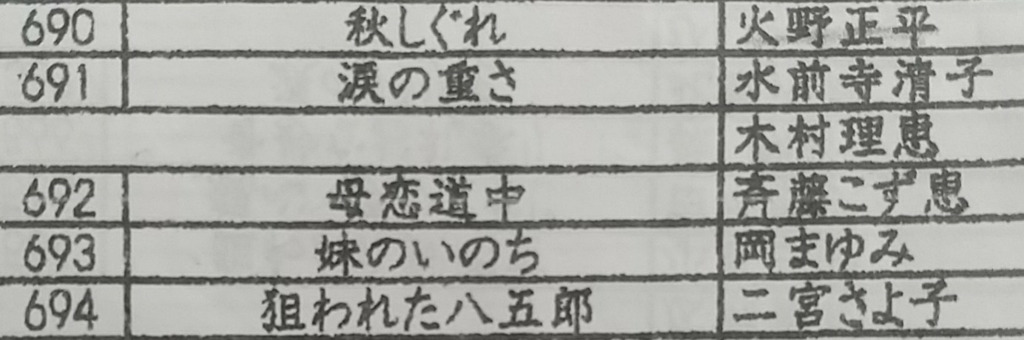 690 秋しぐれ 火野正平
691 涙の重さ 水前寺清子
木村理恵
692 母恋道中 斉藤こず恵
693 妹のいのち 岡まゆみ
694 狙われた八五郎 二宮さよ子